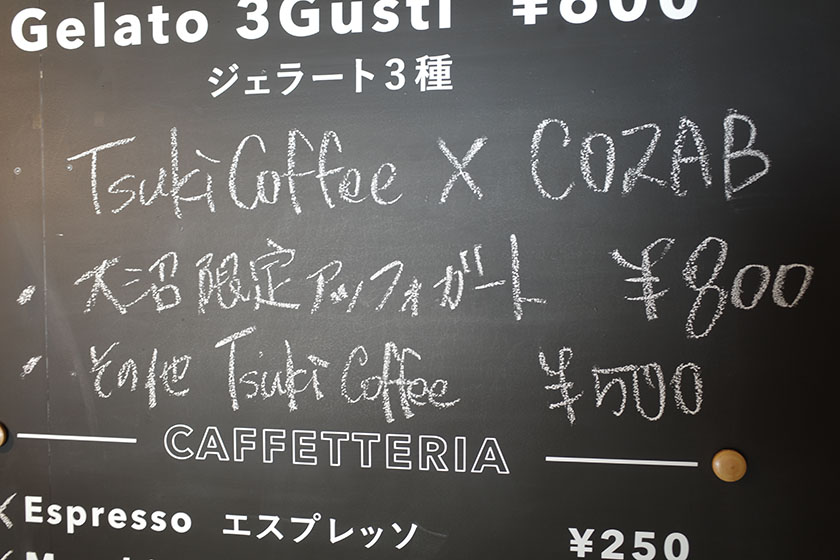 Gelato 3Gusti ¥800
ジェラート3種
Tsuki Coffee X COZAB
・大沼限定アッフォガート ¥800
・その他 Tsuki Coffee ¥500
CAFFETTERIA
Espresso エスプレッソ ¥250